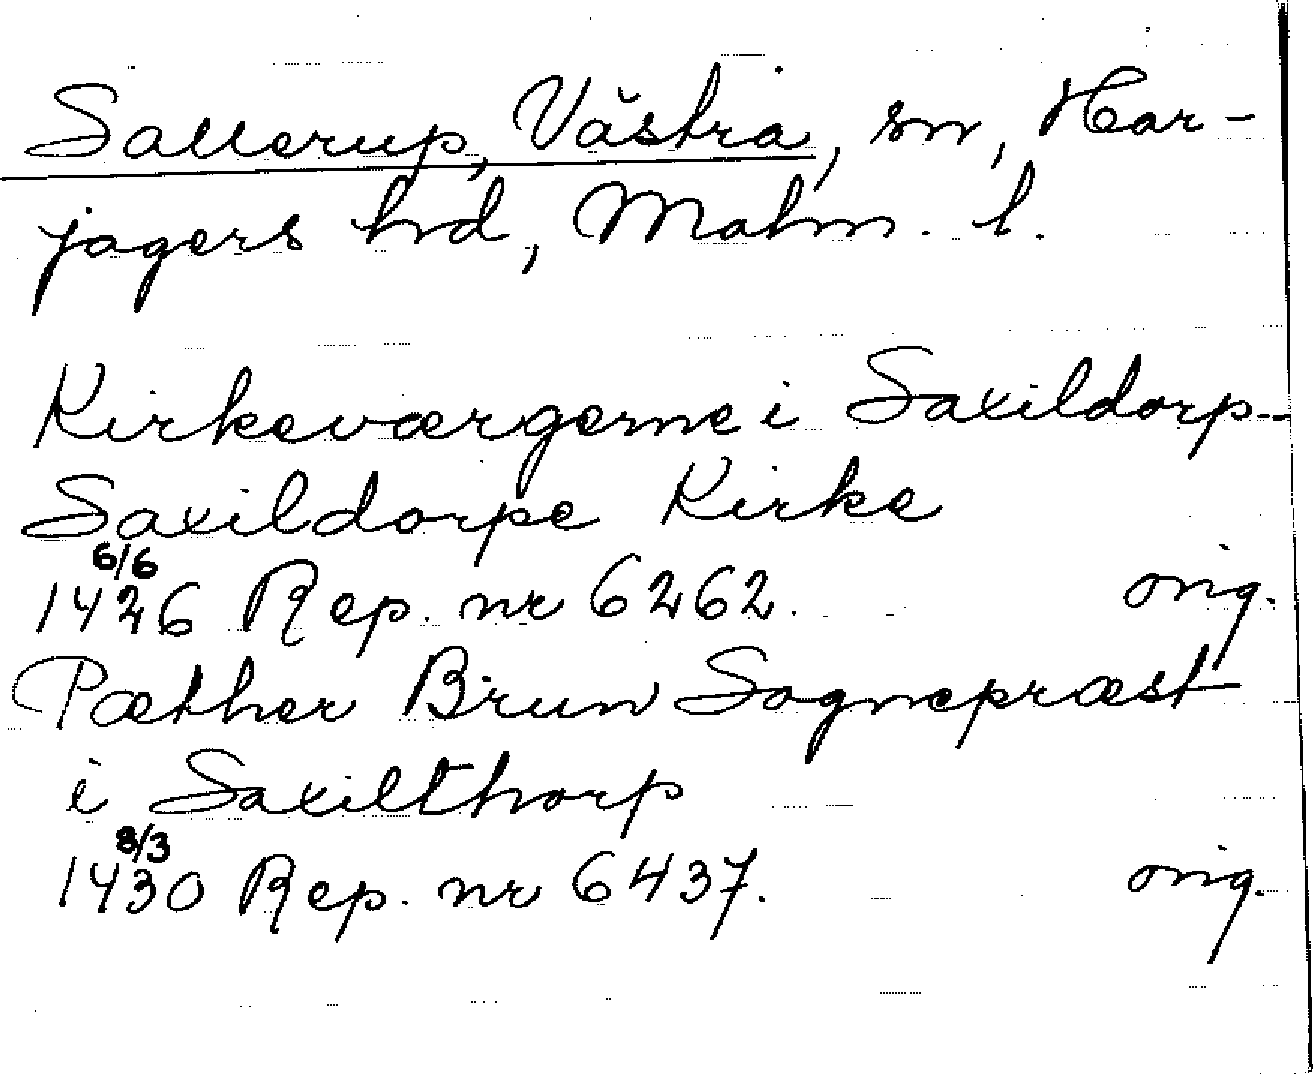 Sallerup, Västra, sn, Har-
jagers hrd, Malm. l.
Kirkeværgerne i Saxildorp--
Saxildorpe Kirke
6/6
1426 Rep. nr 6262. orig.
Pæther Brun Sognepræst
i Saxilthorp
8/3
1430 Rep. nr 6437. orig.